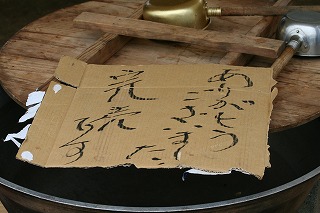 ありがとう
ございました
完売です